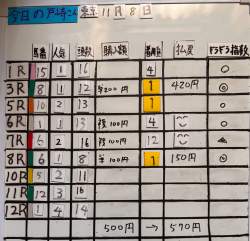 今日の戸崎さん 東京 11月8日
馬番 人気 頭数 購入額 着順 払戻 ドラドラ指数
1R 15 1 16 4 ○
3R 8 1 12 単200円 1 420円 ◎
5R 10 2 13 1 ○
6R 1 1 13 複100円 4 ○
7R 6 2 16 複100円 12 ▲
8R 6 1 8 単100円 1 150円 ◎
10R 5 2 11
11R 12 3 16
12R 1 4 14
500円 → 570円